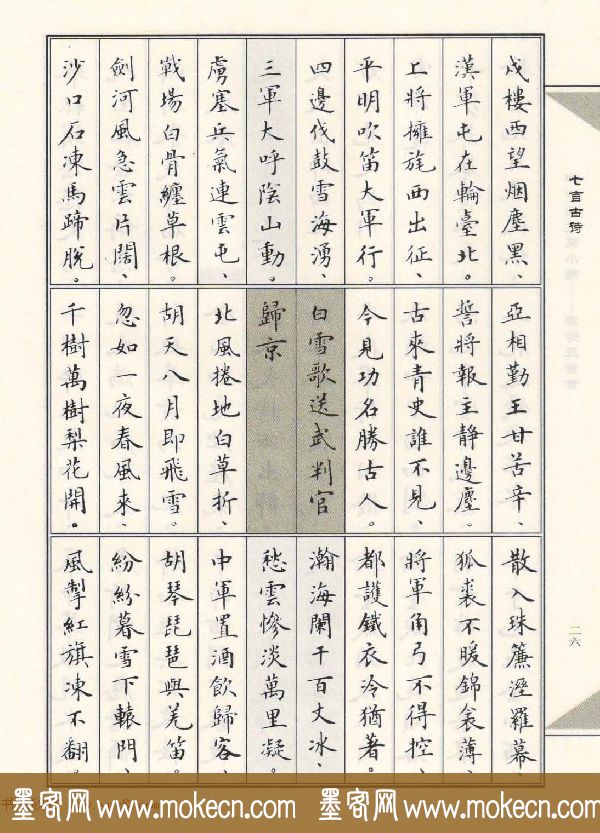 七言古詩
戍樓西望烟塵黑、
漢軍屯在輪臺北。
上將擁旄西出征、
平明吹笛大軍行。
四邊伐鼓雪海湧、
三軍大呼陰山動。
虜塞兵氣連雲屯、
戰場白骨纏草根。
劍河風急雲片闊、
沙口石凍馬蹄脫。
亞相勤王甘苦辛、
誓將報主靜邊塵。
古來青史誰不見、
今見功名勝古人。
白雪歌送武判官
歸京
北風捲地白草折、
胡天八月即飛雪。
忽如一夜春風來、
千樹萬樹梨花開。
散入珠簾溼羅幕、
狐裘不暖錦衾薄、
將軍角弓不得控、
都護鐵衣冷猶著。
瀚海闌干百丈冰、
愁雲慘淡萬里凝。
中軍置酒飲歸客、
胡琴琵琶與羌笛。
紛紛暮雪下轅門、
風掣紅旗凍不翻。
二六
墨客网 www.mokecn.com 墨客网 www.mokecn.com